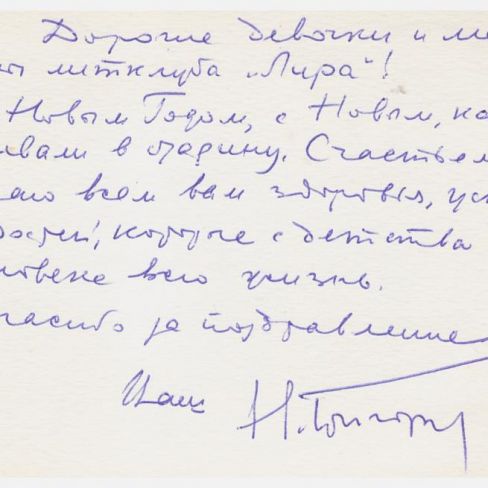 Дорогие девочки и ма
ы литклуба „Лира"!
Новым Годом, с Новым, ка
вали в старину. Счастьем
аю всем вам здоровья, ус
остей, которые с детства
ловеке всю жизнь.
пасибо за поздравление
Ваш